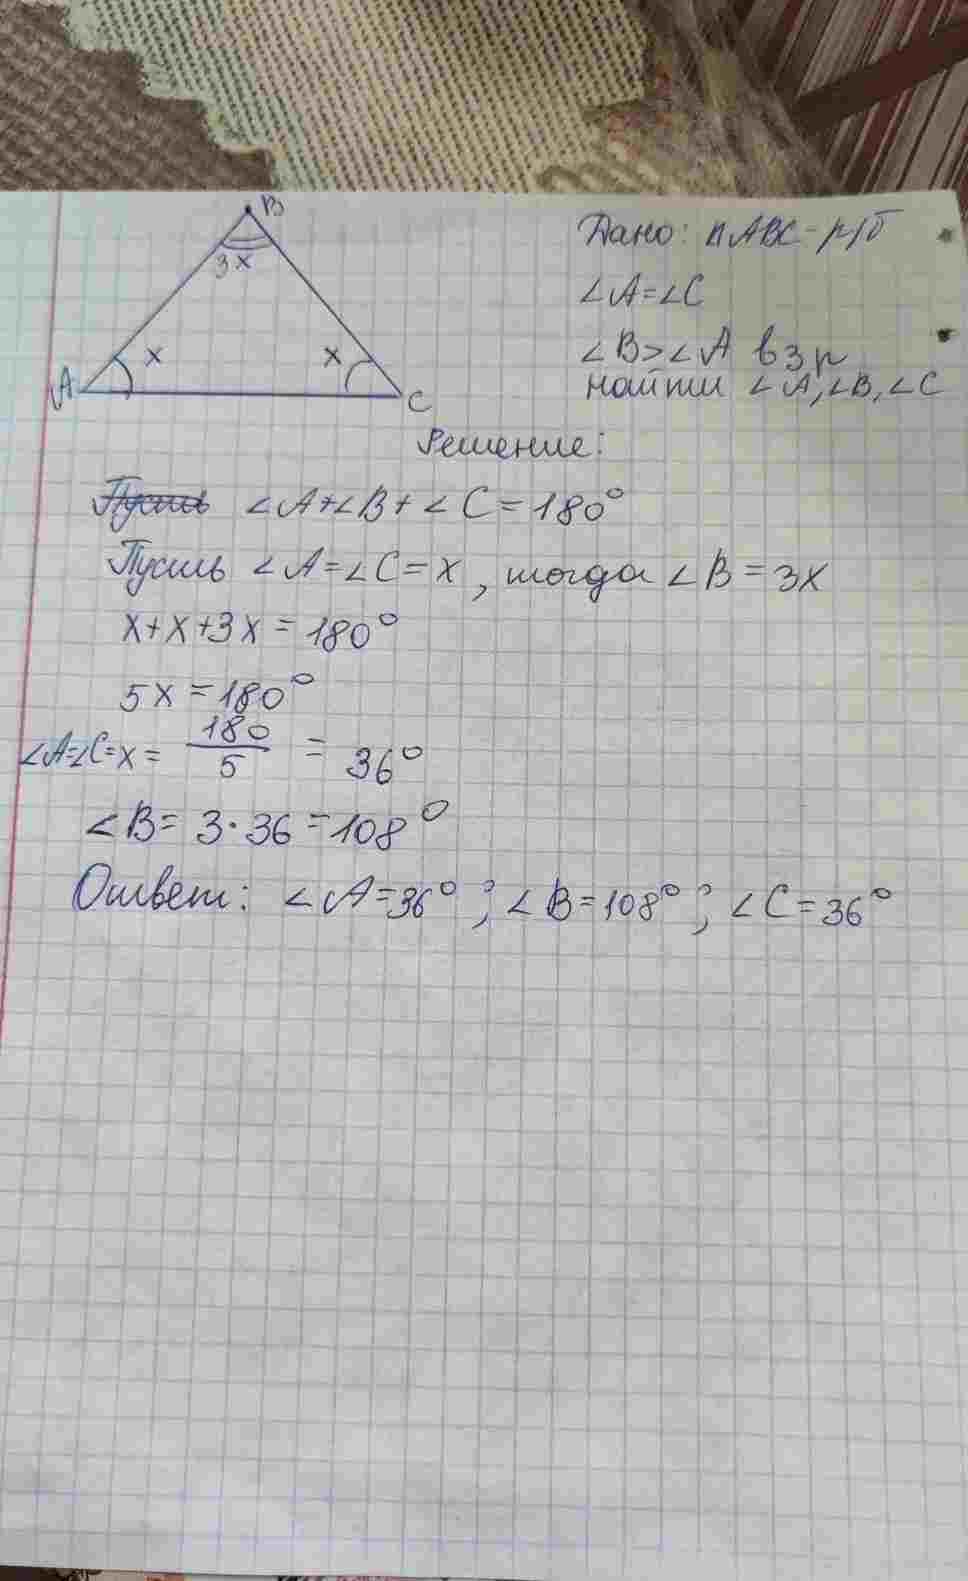 B
3x
A
x
x
C
Дано: ΔABC - р/б
∠A=∠C
∠B>∠A в 3 р
найти ∠A,∠B,∠C
Решение:
Пусть ∠A+∠B+∠C=180°
Пусть ∠A=∠C=x, тогда ∠B=3x
x+x+3x=180°
5x=180°
∠A=∠C=x= 180/5 = 36°
∠B= 3·36=108°
Ответ: ∠A=36°; ∠B=108°; ∠C=36°